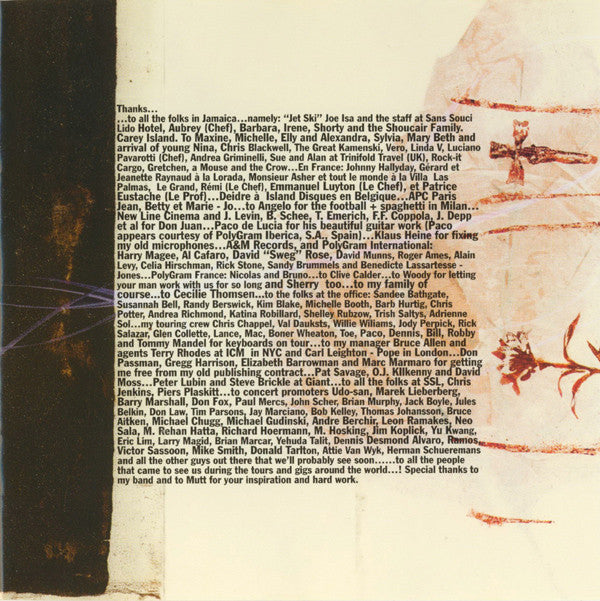 Thanks...
...to all the folks in Jamaica...namely: "Jet Ski" Joe Isa and the staff at Sans Souci
Lido Hotel, Aubrey (Chef), Barbara, Irene, Shorty and the Shoucair Family.
Carey Island. To Maxine, Michelle, Elly and Alexandra, Sylvia, Mary Beth and
arrival of young Nina, Chris Blackwell, The Great Kamenski, Vero, Linda V, Luciano
Pavarotti (Chef), Andrea Griminelli, Sue and Alan at Trinifold Travel (UK), Rock-it
Cargo, Gretchen, a Mouse and the Crow...En France: Johnny Hallyday, Gérard et
Jeanette Raynaud à la Lorada, Monsieur Asher et tout le monde à la Villa Las
Palmas, Le Grand, Rémi (Le Chef), Emmanuel Luyton (Le Chef), et Patrice
Eustache (Le Prof)...Deidre à Island Disques en Belgique...APC Paris
Jean, Betty et Marie - Jo...to Angelo for the football + spaghetti in Milan...
New Line Cinema and J. Levin, B. Schee, T. Emerich, F.F. Coppola, J. Depp
et al for Don Juan...Paco de Lucia for his beautiful guitar work (Paco
appears courtesy of PolyGram Iberica, S.A., Spain)...Klaus Heine for fixing
my old microphones...A&M Records, and PolyGram International:
Harry Magee, Al Cafaro, David "Sweg" Rose, David Munns, Roger Ames, Alain
Levy, Celia Hirschman, Rick Stone, Sandy Brummels and Benedicte Lassartesse -
Jones...PolyGram France: Nicolas and Bruno...to Clive Calder...to Woody for letting
your man work with us for so long and Sherry too...to my family of
course...to Cecilie Thomsen...to the folks at the office: Sandee Bathgate,
Susannah Bell, Randy Berswick, Kim Blake, Michelle Booth, Barb Hurtig, Chris
Potter, Andrea Richmond, Katina Robillard, Shelley Rubzow, Trish Saltys, Adrienne
Sol...my touring crew Chris Chappel, Val Dauksts, Willie Wiliams, Jody Perpick, Rick
Salazar, Glen Collette, Lance, Mac, Boner Wheaton, Toe, Paco, Dennis, Bill, Robby
and Tommy Mandel for keyboards on tour...to my manager Bruce Allen and
agents Terry Rhodes at ICM in NYC and Carl Leighton - Pope in London...Don
Passman, Gregg Harrison, Elizabeth Barrowman and Marc Marmaro for getting
me free from my old publishing contract...Pat Savage, O.J. Kilkenny and David
Moss...Peter Lubin and Steve Brickle at Giant...to all the folks at SSL, Chris
Jenkins, Piers Plaskitt...to concert promoters Udo-san, Marek Lieberberg,
Barry Marshall, Don Fox, Paul Mercs, John Scher, Brian Murphy, Jack Boyle, Jules
Belkin, Don Law, Tim Parsons, Jay Marciano, Bob Kelley, Thomas Johansson, Bruce
Aitken, Michael Chugg, Michael Gudinski, Andre Berchir, Leon Ramakes, Neo
Sala, M. Rehan Hatta, Richard Hoermann, M. Hosking, Jim Koplick, Yu Kwang,
Eric Lim, Larry Magid, Brian Marcar, Yehuda Talit, Dennis Desmond Alvaro, Ramos,
Victor Sassoon, Mike Smith, Donald Tarlton, Attie Van Wyk, Herman Schueremans
and all the other guys out there that we'll probably see soon......to all the people
that came to see us during the tours and gigs around the world...! Special thanks to
my band and to Mutt for your inspiration and hard work.